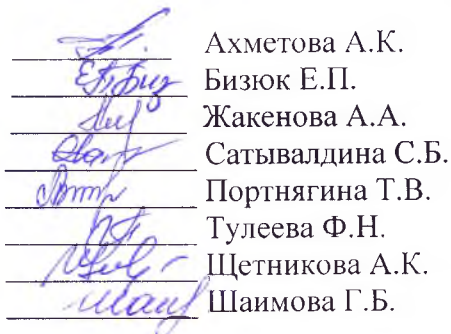 Ахметова А.К.
Бизюк Е.П.
Жакенова А.А.
Сатывалдина С.Б.
Портнягина Т.В.
Тулеева Ф.Н.
Щетникова А.К.
Шаимова Г.Б.